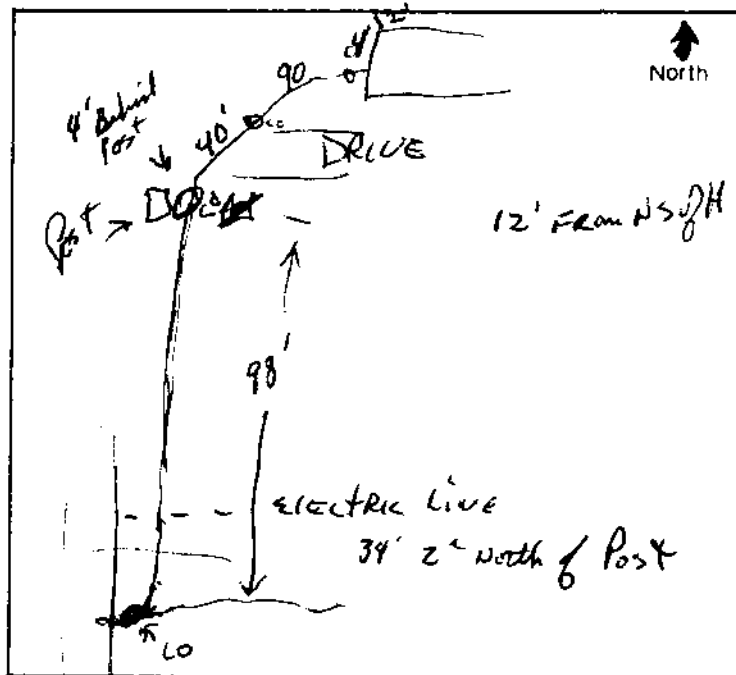 2'
4'
90
North
4' Behind
Post
40'
co
DRIVE
Post
co
12' From NS of H
98'
Electric Line
34' 2" North of Post